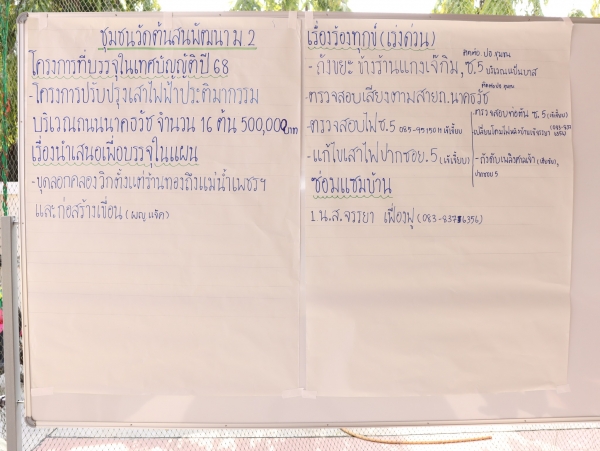 ชุมชนวัดต้นสนพัฒนา ม.2
โครงการที่บรรจุในเทศบัญญัติปี 68
-โครงการปรับปรุงเสาไฟฟ้าประติมากรรม
บริเวณถนนนาคธวัช จำนวน 16 ต้น 500,000บาท
เรื่องนำเสนอเพื่อบรรจุในแผน
-ขุดลอกคลองวิกตั้งแต่ร้านทองถึงแม่น้ำเพชรฯ
และก่อสร้างเขื่อน (ผญ.แจ๊ค)
เรื่องร้องทุกข์ (เร่งด่วน)
ติดต่อ ปธ.ชุมชน
-ถังขยะ ข้างร้านแกงเจ๊กิม, ซ.5 บริเวณแป้นบาส
ติดต่อ ปธ.ชุมชน
-ตรวจสอบเสียงตามสายถ.นาคธวัช
-ตรวจสอบไฟซ.5 085-9515011 เจ๊เจี๊ยบ
-แก้ไขเสาไฟปากซอย.5 (เจ๊เจี๊ยบ)
-ตรวจสอบท่อตัน ซ.5 (เจ๊เจี๊ยบ)
-ถังดับเพลิงศาลเจ้า
ปากซอย 5
ซ่อมแซมบ้าน
1 น.ส.จรรยา เฟื่องฟู (083-8376356)